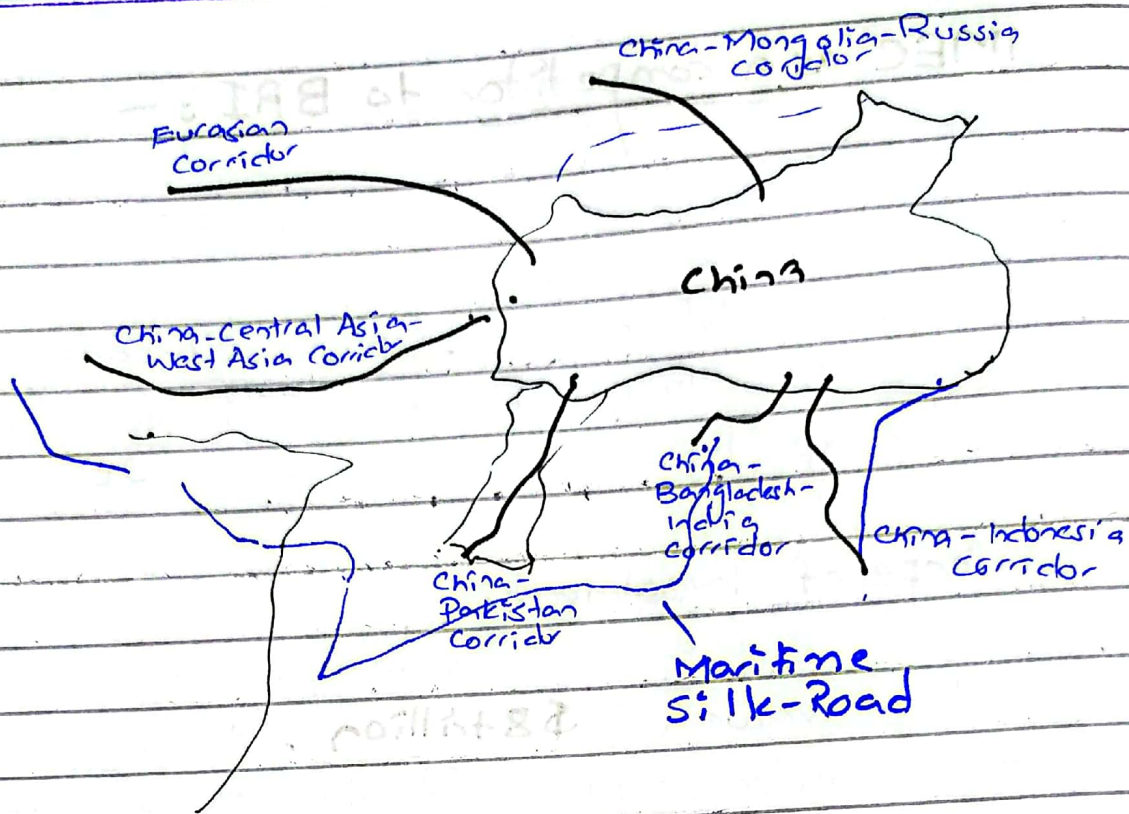 China-Mongolia-Russia
Corridor
Eurasian
Corridor
China
China-Central Asia-
West Asia Corridor
China-
Bangladesh-
India
corridor
China-Indonesia
Corridor
China-
Pakistan
Corridor
Maritime
Silk-Road